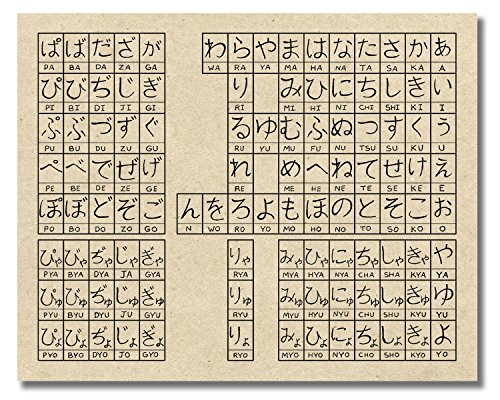 ぱ ば だ ざ が わ ら や ま は な た さ か あ
PA BA DA ZA GA WA RA YA MA HA NA TA SA KA A
ぴ び ぢ じ ぎ り み ひ に ち し き い
PI BI DI JI GI RI MI HI NI CHI SHI KI I
ぷ ぶ づ ず ぐ る ゆ む ふ ぬ つ す く う
PU BU DU ZU GU RU YU MU FU NU TSU SU KU U
ぺ べ で ぜ げ れ め へ ね て せ け え
PE BE DE ZE GE RE ME HE NE TE SE KE E
ぽ ぼ ど ぞ ご ん を ろ よ も ほ の と そ こ お
PO BO DO ZO GO N WO RO YO MO HO NO TO SO KO O
ぴゃ びゃ ぢゃ じゃ ぎゃ りゃ みゃ ひゃ にゃ ちゃ しゃ きゃ や
PYA BYA DYA JA GYA RYA MYA HYA NYA CHA SHA KYA YA
ぴゅ びゅ ぢゅ じゅ ぎゅ りゅ みゅ ひゅ にゅ ちゅ しゅ きゅ ゆ
PYU BYU DYU JU GYU RYU MYU HYU NYU CHU SHU KYU YU
ぴょ びょ ぢょ じょ ぎょ りょ みょ ひょ にょ ちょ しょ きょ よ
PYO BYO DYO JO GYO RYO MYO HYO NYO CHO SHO KYO YO